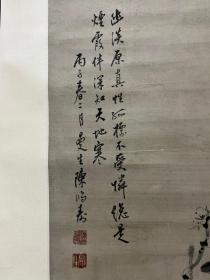 幽淡原真性孤標不受憐總是
煙霞伴深知天地寒
丙子春二月曼生陳鴻壽